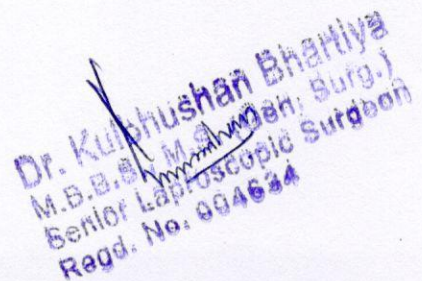 Dr. Kulbhushan Bhartiya
M.B.B.S. M.S. (Gen. Surg.)
Senior Laproscopic Surgeon
Regd. No. 004634